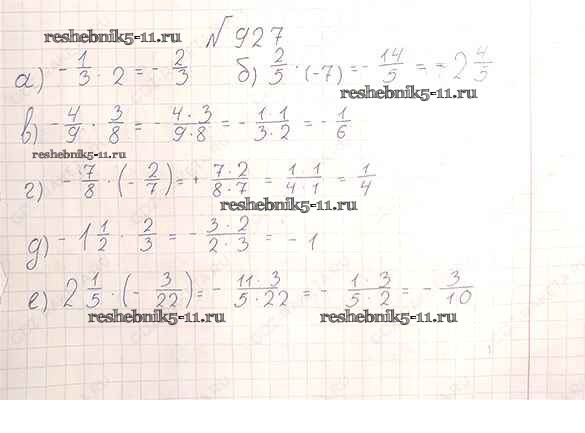 reshebnik5-11.ru
№ 927
а) - 1/3 · 2 = - 2/3   б) 2/5 · (-7) = - 14/5 = - 2 4/5
в) - 4/9 · 3/8 = - 4·3/9·8 = - 1·1/3·2 = - 1/6
reshebnik5-11.ru
г) - 7/8 · (- 2/7) = + 7·2/8·7 = 1·1/4·1 = 1/4
reshebnik5-11.ru
д) - 1 1/2 · 2/3 = - 3·2/2·3 = - 1
е) 2 1/5 · (- 3/22) = - 11·3/5·22 = - 1·3/5·2 = - 3/10
reshebnik5-11.ru   reshebnik5-11.ru